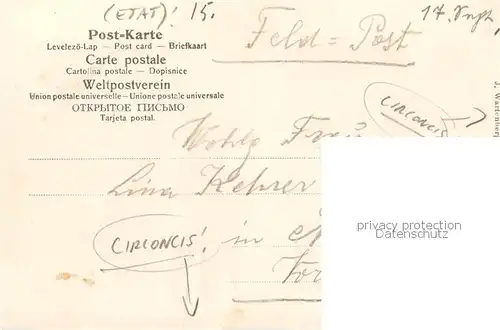 (ETAT)! 15.
Post-Karte
Levelező-Lap — Post card — Briefkaart
Carte postale
Cartolina postale — Dopisnice
Weltpostverein
Union postale universelle — Unione postale universale
ОТКРЫТОЕ ПИСЬМО
Tarjeta postal.
Feld = Post
17.
CIRCONCIS
Wohlg Frau
Lina Kehrer
CIRCONCIS! in
privacy protection
Datenschutz